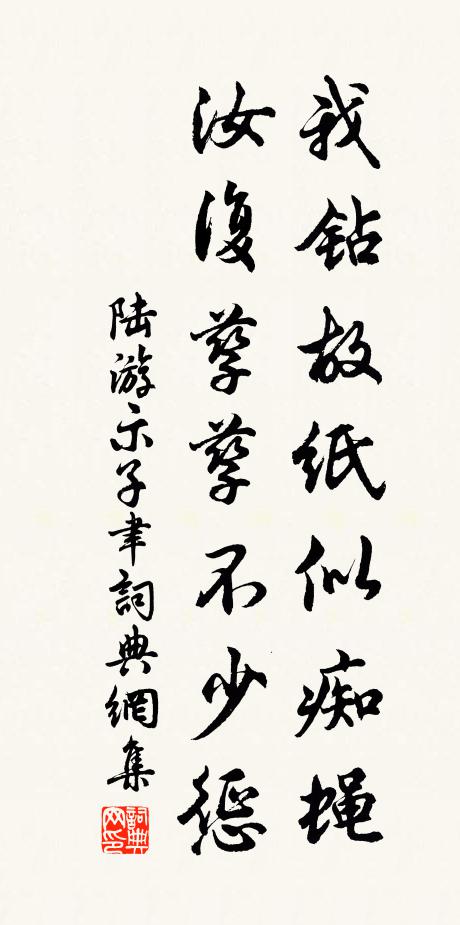 我钻故纸似痴蝇
汝復孳孳不少惩
陆游示子聿詞典網集
詞典网印